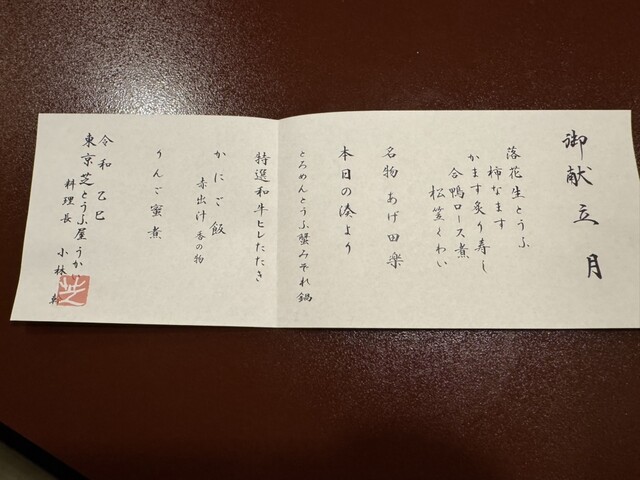 御献立 月
落花生とうふ
柿なます
かます炙り寿し
合鴨ロース煮
松笠くわい
名物 あげ田楽
本日の湊より
とろめんとうふ蟹みぞれ鍋
特選和牛ヒレたたき
かにご飯
赤出汁 香の物
りんご蜜煮
令和 乙巳
東京芝とうふ屋うかい
料理長 小林
芝